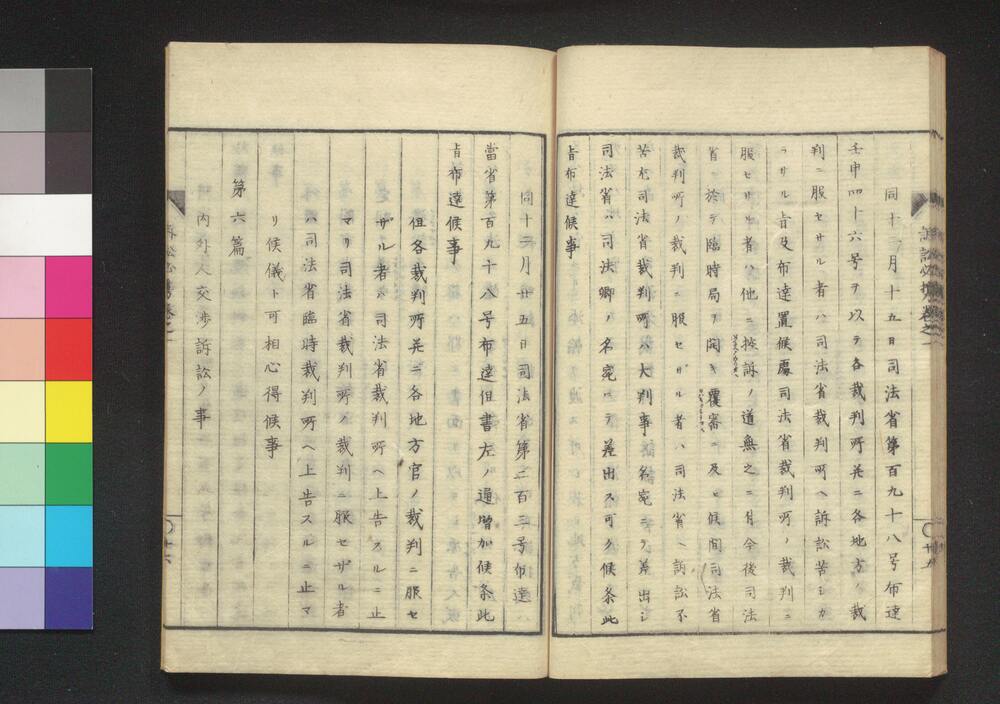 同十一月十五日司法省第百九十八号布達
壬申四十六号ヲ以テ各裁判所并ニ各地方ノ裁
判ニ服セサル者ハ司法省裁判所ヘ訴訟苦シカ
ラサル旨及布達置候處司法省裁判所ノ裁判ニ
服セサル者ハ他ニ控訴ノ道無之ニ付今後司法
省ニ於テ臨時局ヲ開キ覆審ニ及ヒ候間司法省
裁判所ノ裁判ニ服セザル者ハ司法省ヘ訴訟不
苦尤司法省裁判所ハ大判事名宛ニテ差出シ
司法省ハ司法卿ノ名宛ニテ差出ス可ク候条此
旨布達候事
同十二月廿五日司法省第二百三号布達
當省第百九十八号布達但書左ノ通増加候条此
旨布達候事
但各裁判所并ニ各地方官ノ裁判ニ服セ
ザル者ハ司法省裁判所ヘ上告スルニ止
マリ司法省裁判所ノ裁判ニ服セザル者
ハ司法省臨時裁判所ヘ上告スルニ止マ
リ候儀ト可相心得候事
第六篇
内外人交渉訴訟ノ事